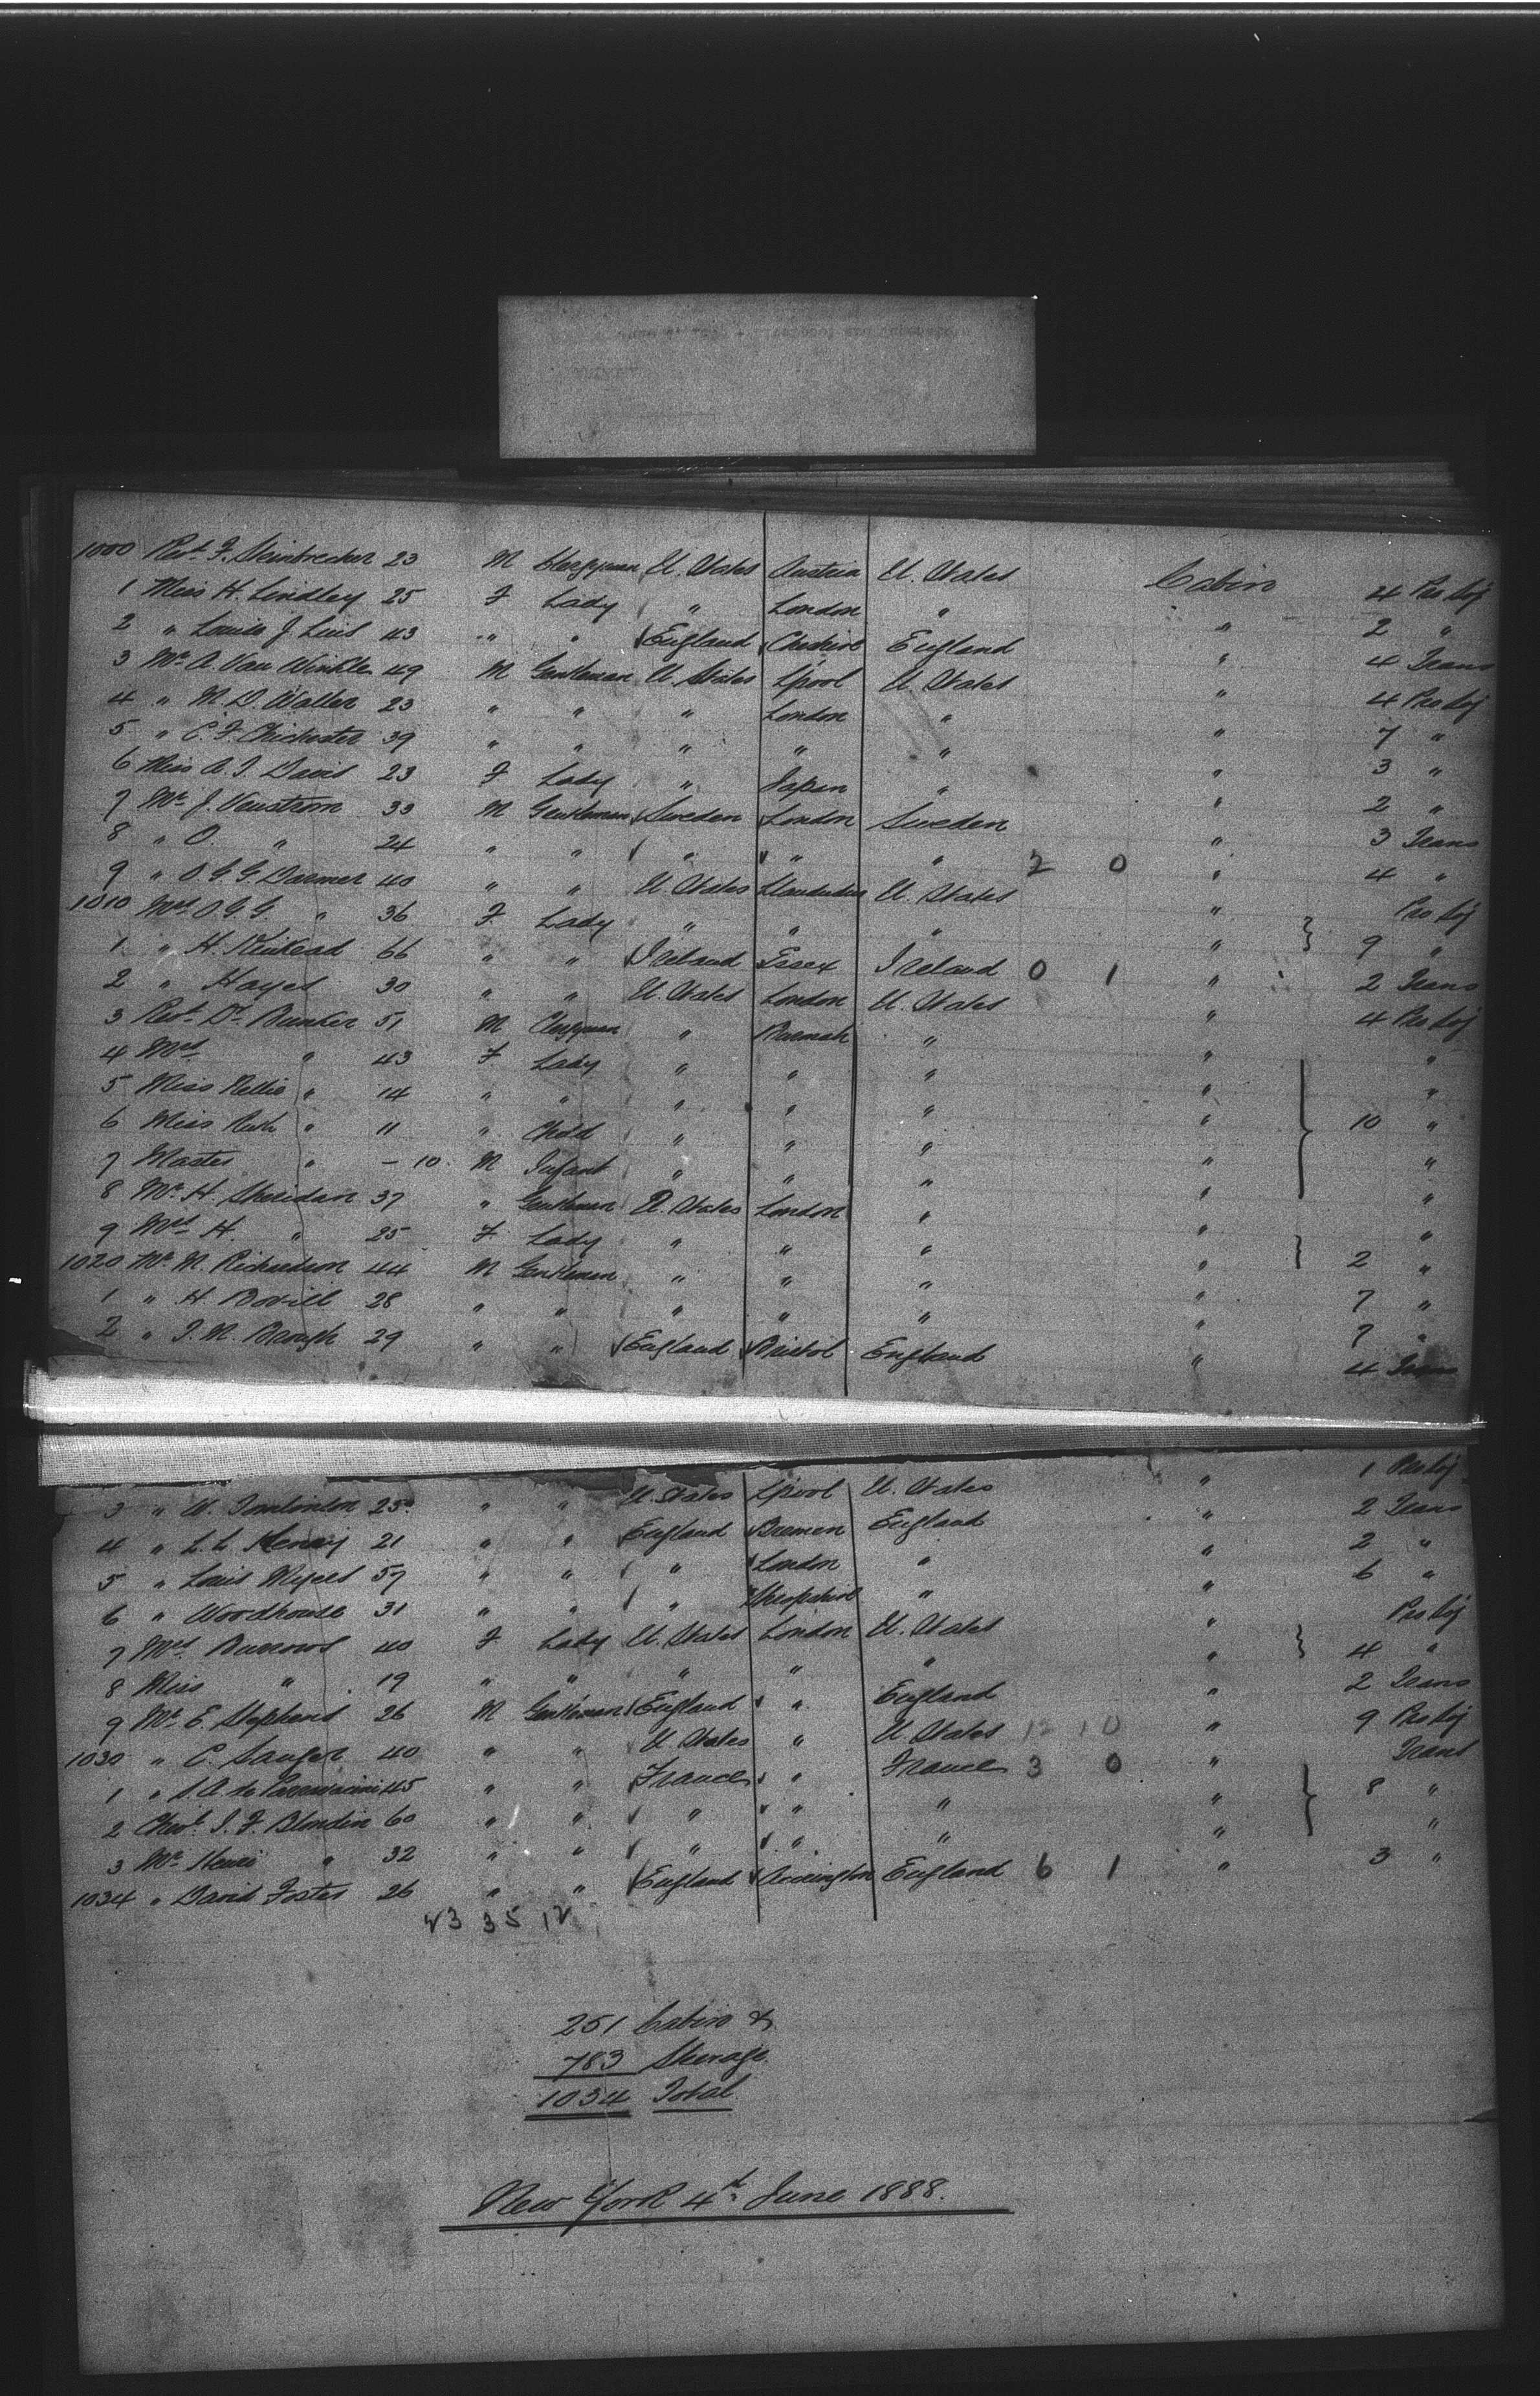 1000 Revd F. Steinbrecher 23 M Clergyman U. States Austria U. States Cabin 4 Pro Soj
1 Miss H. Lindley 25 F Lady " London " " 2 "
2 " Louisa J. 43 " " England Cheshire England " 4 Trans
3 Mr A. Van Winkle 49 M Gentleman U. States Lpool U. States " 4 Pro Soj
4 " M. D. Waller 23 " " " London " " 7 "
5 " C. F. Chichester 39 " " " " " " 3 "
6 Miss A. J. Davis 23 F Lady " Japan " " 2 "
7 Mr J. Venstrom 33 M Gentleman Sweden London Sweden " 3 Trans
8 " O. " 24 " " " " " 2 0 " 4 "
9 " O. G. G. 40 " " U. States Llandudno U. States " Pro Soj
1010 Mrs O. G. G. " 36 F Lady " " " " 9 "
1 " H. Kinkead 66 " " Ireland Essex Ireland 0 1 " 2 Trans
2 " Hayes 30 " " U. States London U. States " 4 Pro Soj
3 Revd Dr Bunker 51 M Clergyman " Burmah " " "
4 Mrs " 43 F Lady " " " " "
5 Miss Nellie " 14 " " " " " " 10 "
6 Miss Ruth " 11 " Child " " " " "
7 Master " - 10 M Infant " " " " "
8 Mr H. Sheridan 37 " Gentleman U. States London " " "
9 Mrs H. " 25 F Lady " " " " 2 "
1020 Mr M. Richardson 44 M Gentleman " " " " 7 "
1 " H. Bovill 28 " " " " " " 7 "
2 " J. M. Brough 29 " " England Bristol England " 4 Trans
3 " W. Tomlinson 25 " " U. States Lpool U. States " 1 Pro Soj
4 " L. L. Henry 21 " " England Bremen England " 2 Trans
5 " Louis Myers 57 " " " London " " 2 "
6 " Woodhouse 31 " " " Shropshire " " 6 "
7 Mrs Burrows 40 F Lady U. States London U. States " Pro Soj
8 Miss " 19 " " " " " " 4 "
9 Mr E. Stephens 26 M Gentleman England " England " 2 Trans
1030 " C. Sauger 40 " " U. States " U. States 12 10 " 9 Pro Soj
1 " A. de 45 " " France " France 3 0 " Trans
2 Chevr J. F. Blondin 60 " " " " " " 8 "
3 Mr Henri " 32 " " " " " " "
1034 " David Foster 26 " " England Accrington England 6 1 " 3 "
23 35 12
251 Cabin &
783 Steerage
1034 Total
New York 4th June 1888.